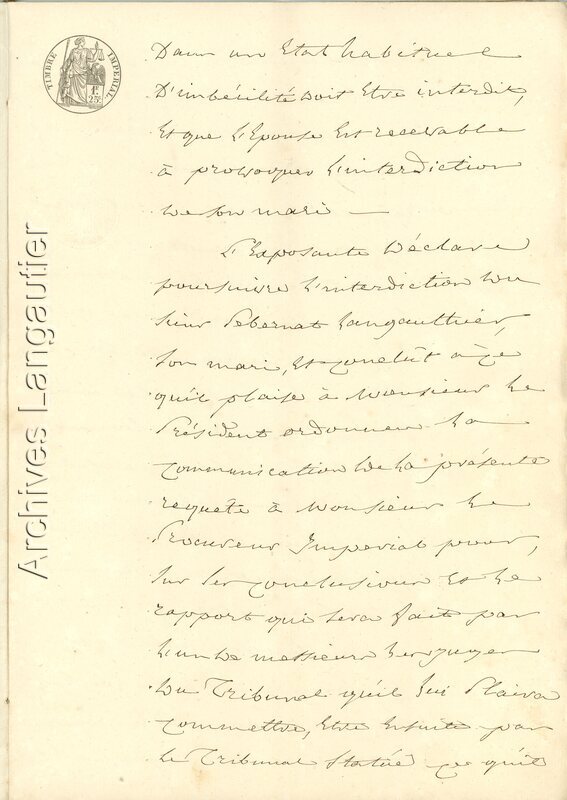 TIMBRE IMPERIAL
1F
25c
Dans un Etat habituel
D'imbécilité doit Etre interdit,
Et que L'Epouse Est recevable
à provoquer L'interdiction
de son mari —
L'Exposante Déclare
poursuivre L'interdiction du
sieur Langauthier,
son mari, Et conclût à ce
qu'il plaise à Monsieur Le
Président ordonner La
communication de La présente
requête à Monsieur Le
Procureur Imperial pour,
sur ses conclusions Et Le
rapport qui sera fait par
L'un de messieurs Les juges
du Tribunal qu'il lui Plaira
commettre, Etre Ensuite par
Le Tribunal Statué ce qu'il
Archives Langautier